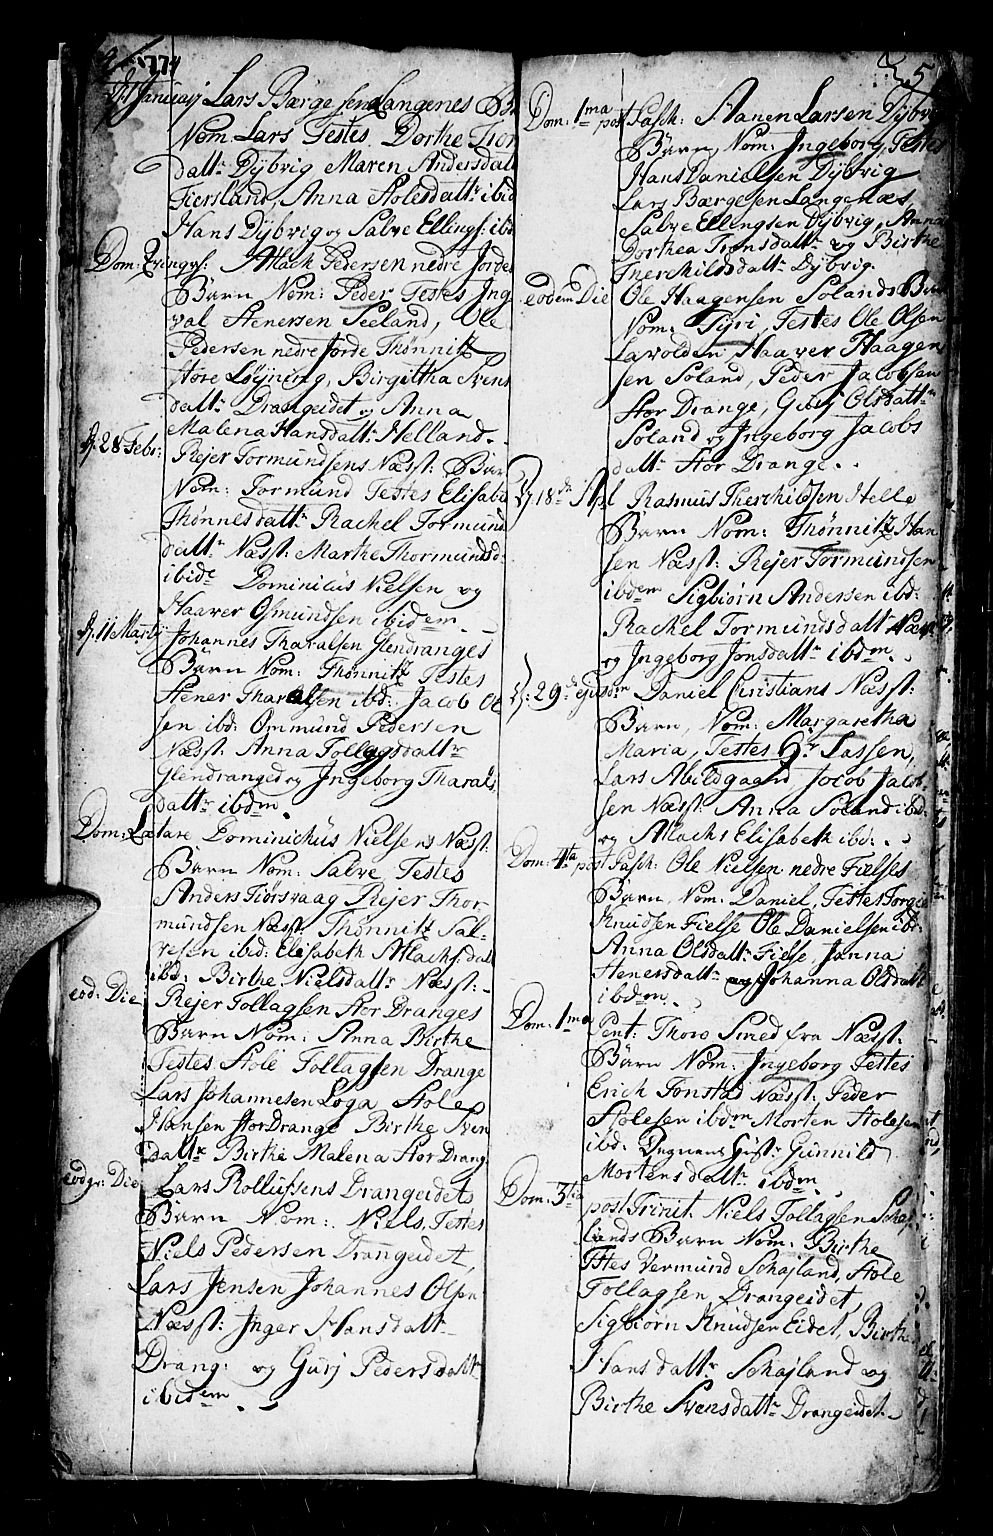 1774
d: 1 January Lars Børgesen Langenes B
Nom: Lars Testes. Dorthe Tron
dattr Dybvig Maren Andersdatt
Fiersland, Anna Aolesdattr ibid
Hans Dybvig og Salve Ellings: ibd
Dom: Atlach Pedersen nedre Jordes
Barn Nom: Peder Testes Ing
val Stenersen Seeland, Ole
Pedersen nedre Jorde Thønnitz
store Løyning, Birgitha Svens
dattr Drangeidet og Anna
Malena Hansdattr Helland.
d: 28 Febr: Rejer Tormundsens Næsst: Barn
Nom: Tormund Testes Elisabe
Thønnesdattr Rachel Tormund
dattr Næsst: Marthe Thormundsd:
ibidm Dominicus Nielsen og
Haaver Osmundsen ibidem.
d. 11 Martij Johannes Tharalsen Glendranges
Barn Nom: Thønnitz Testes
Stener Tharalsen ibd: Jacob Ol
sen ibd: Ommund Pedersen
Næsst: Anna Tollagsdattr
Glendranged og Ingeborg Tharals
dattr ibdm
Dom: Lætare Dominichus Nielsens Næsst:
Barn Nom: Salve Testes
Anders Fiørsvaag Rejer Thor
mundsen Næsst: Thønnitz Sal
vesen ibid: Elisabeth Atlachsdatt
ibd: Birthe Nielsdattr Næsst:
eod: Die Rejer Tollagsen Stor Dranges
Barn Nom: Anna Birthe
Testes Stole Tollagsen Drange
Lars Johannesen Loga Stole
Hansen Stor Drange Birthe Sven
dattr Birthe Malena Stor Drang
eodem Die Lars Rollufsens Drangeidets
Barn Nom: Niels, Testes
Niels Pedersen Drangeidet,
Lars Jensen Johannes Olsen
Næsst: Inger Hansdattr
Drang: og Gurj Pedersdattr
ibidem
5
Dom: 1ma post Pasch: Aanen Larsen Dybvig
Barn, Nom: Ingeborg, Testes
Hans Danielsen Dybvig
Lars Børgesen Langenæs
Salve Ellingsen Dybvig, Anna
Dorthea Tronsdattr og Birthe
Therchildsdattr Dybvig.
eodem Die Ole Haagensen Solands Barn
Nom: Tyri, Testes Ole Olsen
Lavolden, Haaver Haagen
sen Soland, Peder Jacobsen
Stor Drange, Gurj Olsdattr
Soland og Ingeborg Jacobs
dattr Stor Drange.
d. 18de Apl Rasmus Therchildsen Helle
Barn Nom: Thønnitz Han
sen Næsst: Rejer Tormundsen
ibdem Sigbiørn Andersen ibd:
Rachel Tormundsdattr Næsst
og Ingeborg Jonsdattr ibdm.
d: 29de ejusdm Daniel Cristians Næsst:
Barn, Nom: Margaretha
Maria, Testes Hr Lassen,
Lars Abildgaard Jocob Jacob
sen Næsst: Anna Soland ibd:
og Atlachs Elisabeth ibd:
Dom: 4ta post Pasch: Ole Nielsen nedre Fielses
Barn, Nom: Daniel, Testes Torge
Knudsen Fielse Ole Danielsen ibd:
Anna Olsdattr Fielse, Janna
Stenersdattr og Johanna Olsdatt
ibdm.
Dom: 1ma Pent: Thoro Smed fra Næsst:
Barn Nom: Ingeborg Testes
Erich Fonstad Næsst: Peder
Stolesen ibdm Morten Stolesen
ibd: Gunnild
Mortensdattr ibdm.
Dom: 3tia post Trinit. Niels Tollagsen Schøj
lands Barn Nom: Birthe
Testes Vermund Schøjland, Stole
Tollagsen Drangeidet,
Sigbiørn Knudsen Eidet, Birthe
Hansdattr Schøjland og
Birthe Svensdattr Drangeidet.